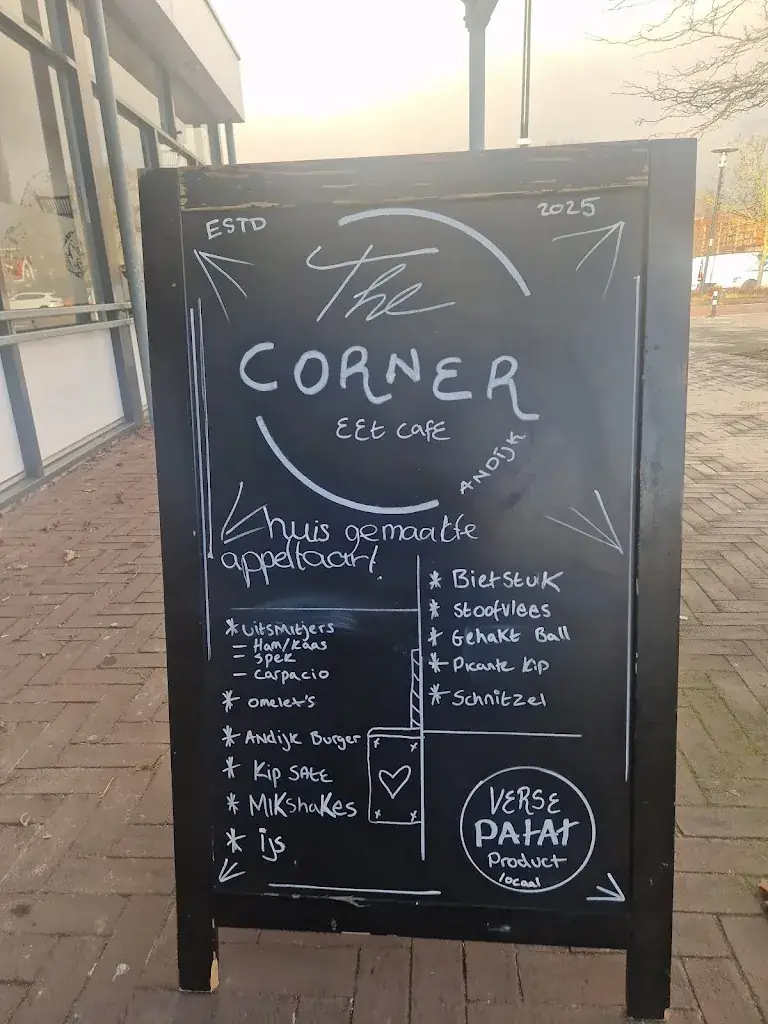 ESTD
2025
The
CORNER
EEt cafe
ANDIJK
huis gemaakte
appeltaart!
* Uitsmijters
- Ham/Kaas
- Spek
- Carpacio
* Omelet's
* Andijk Burger
* Kip SATE
* MilKshaKes
* ijs
* BiefStuK
* Stoofvlees
* Gehakt Ball
* Picante Kip
* Schnitzel
VERSE
PATAT
Product
locaal